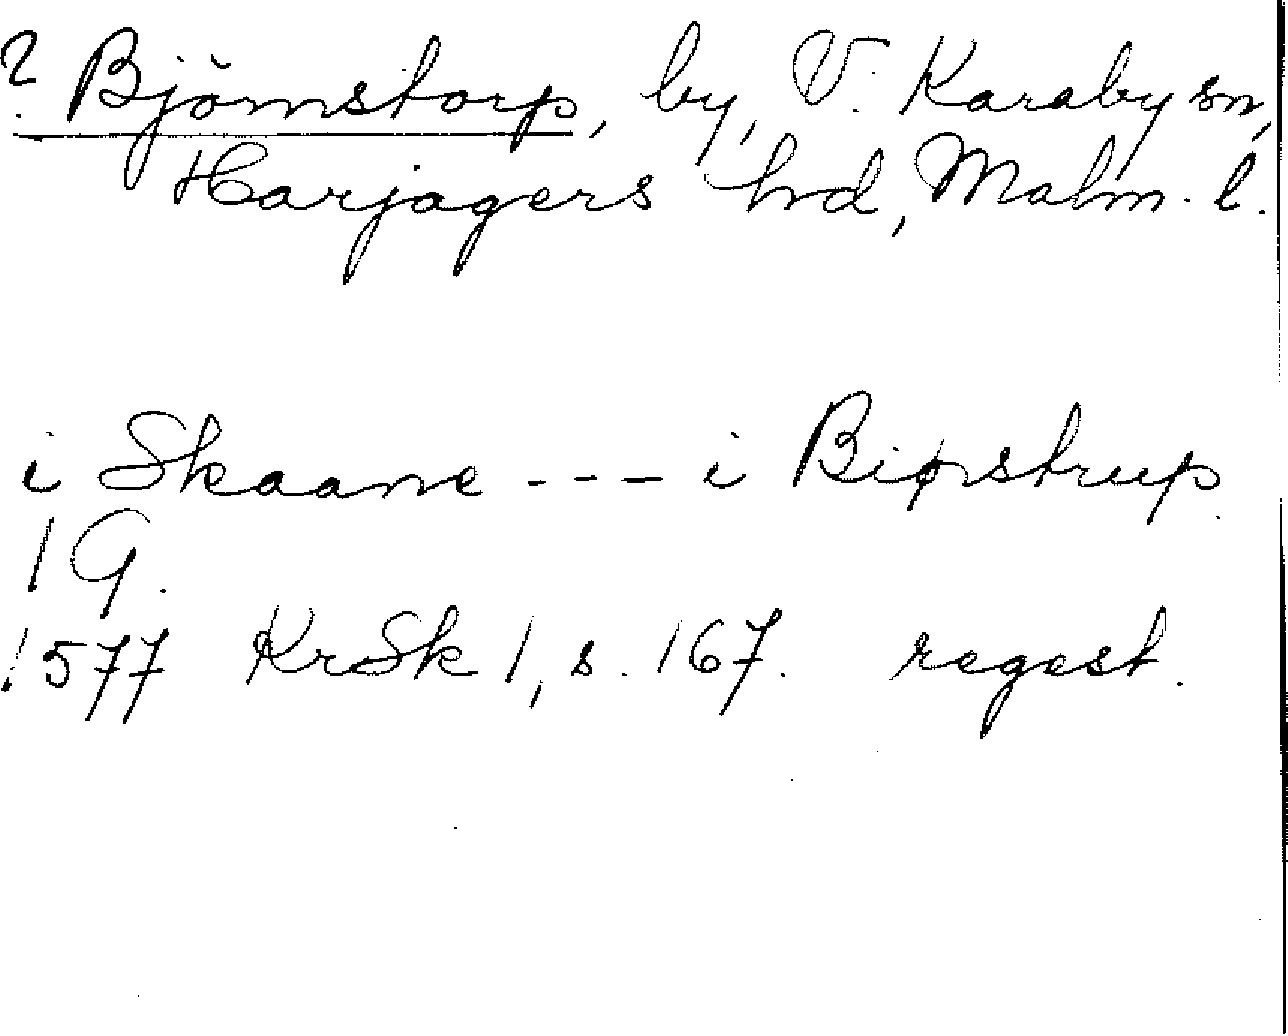 ? Björnstorp, by, V. Karaby sn,
Harjagers hd, Malm. l.
i Skaane --- i Biørstrup.
1 G.
1577 KrSk 1, s. 167. regest.